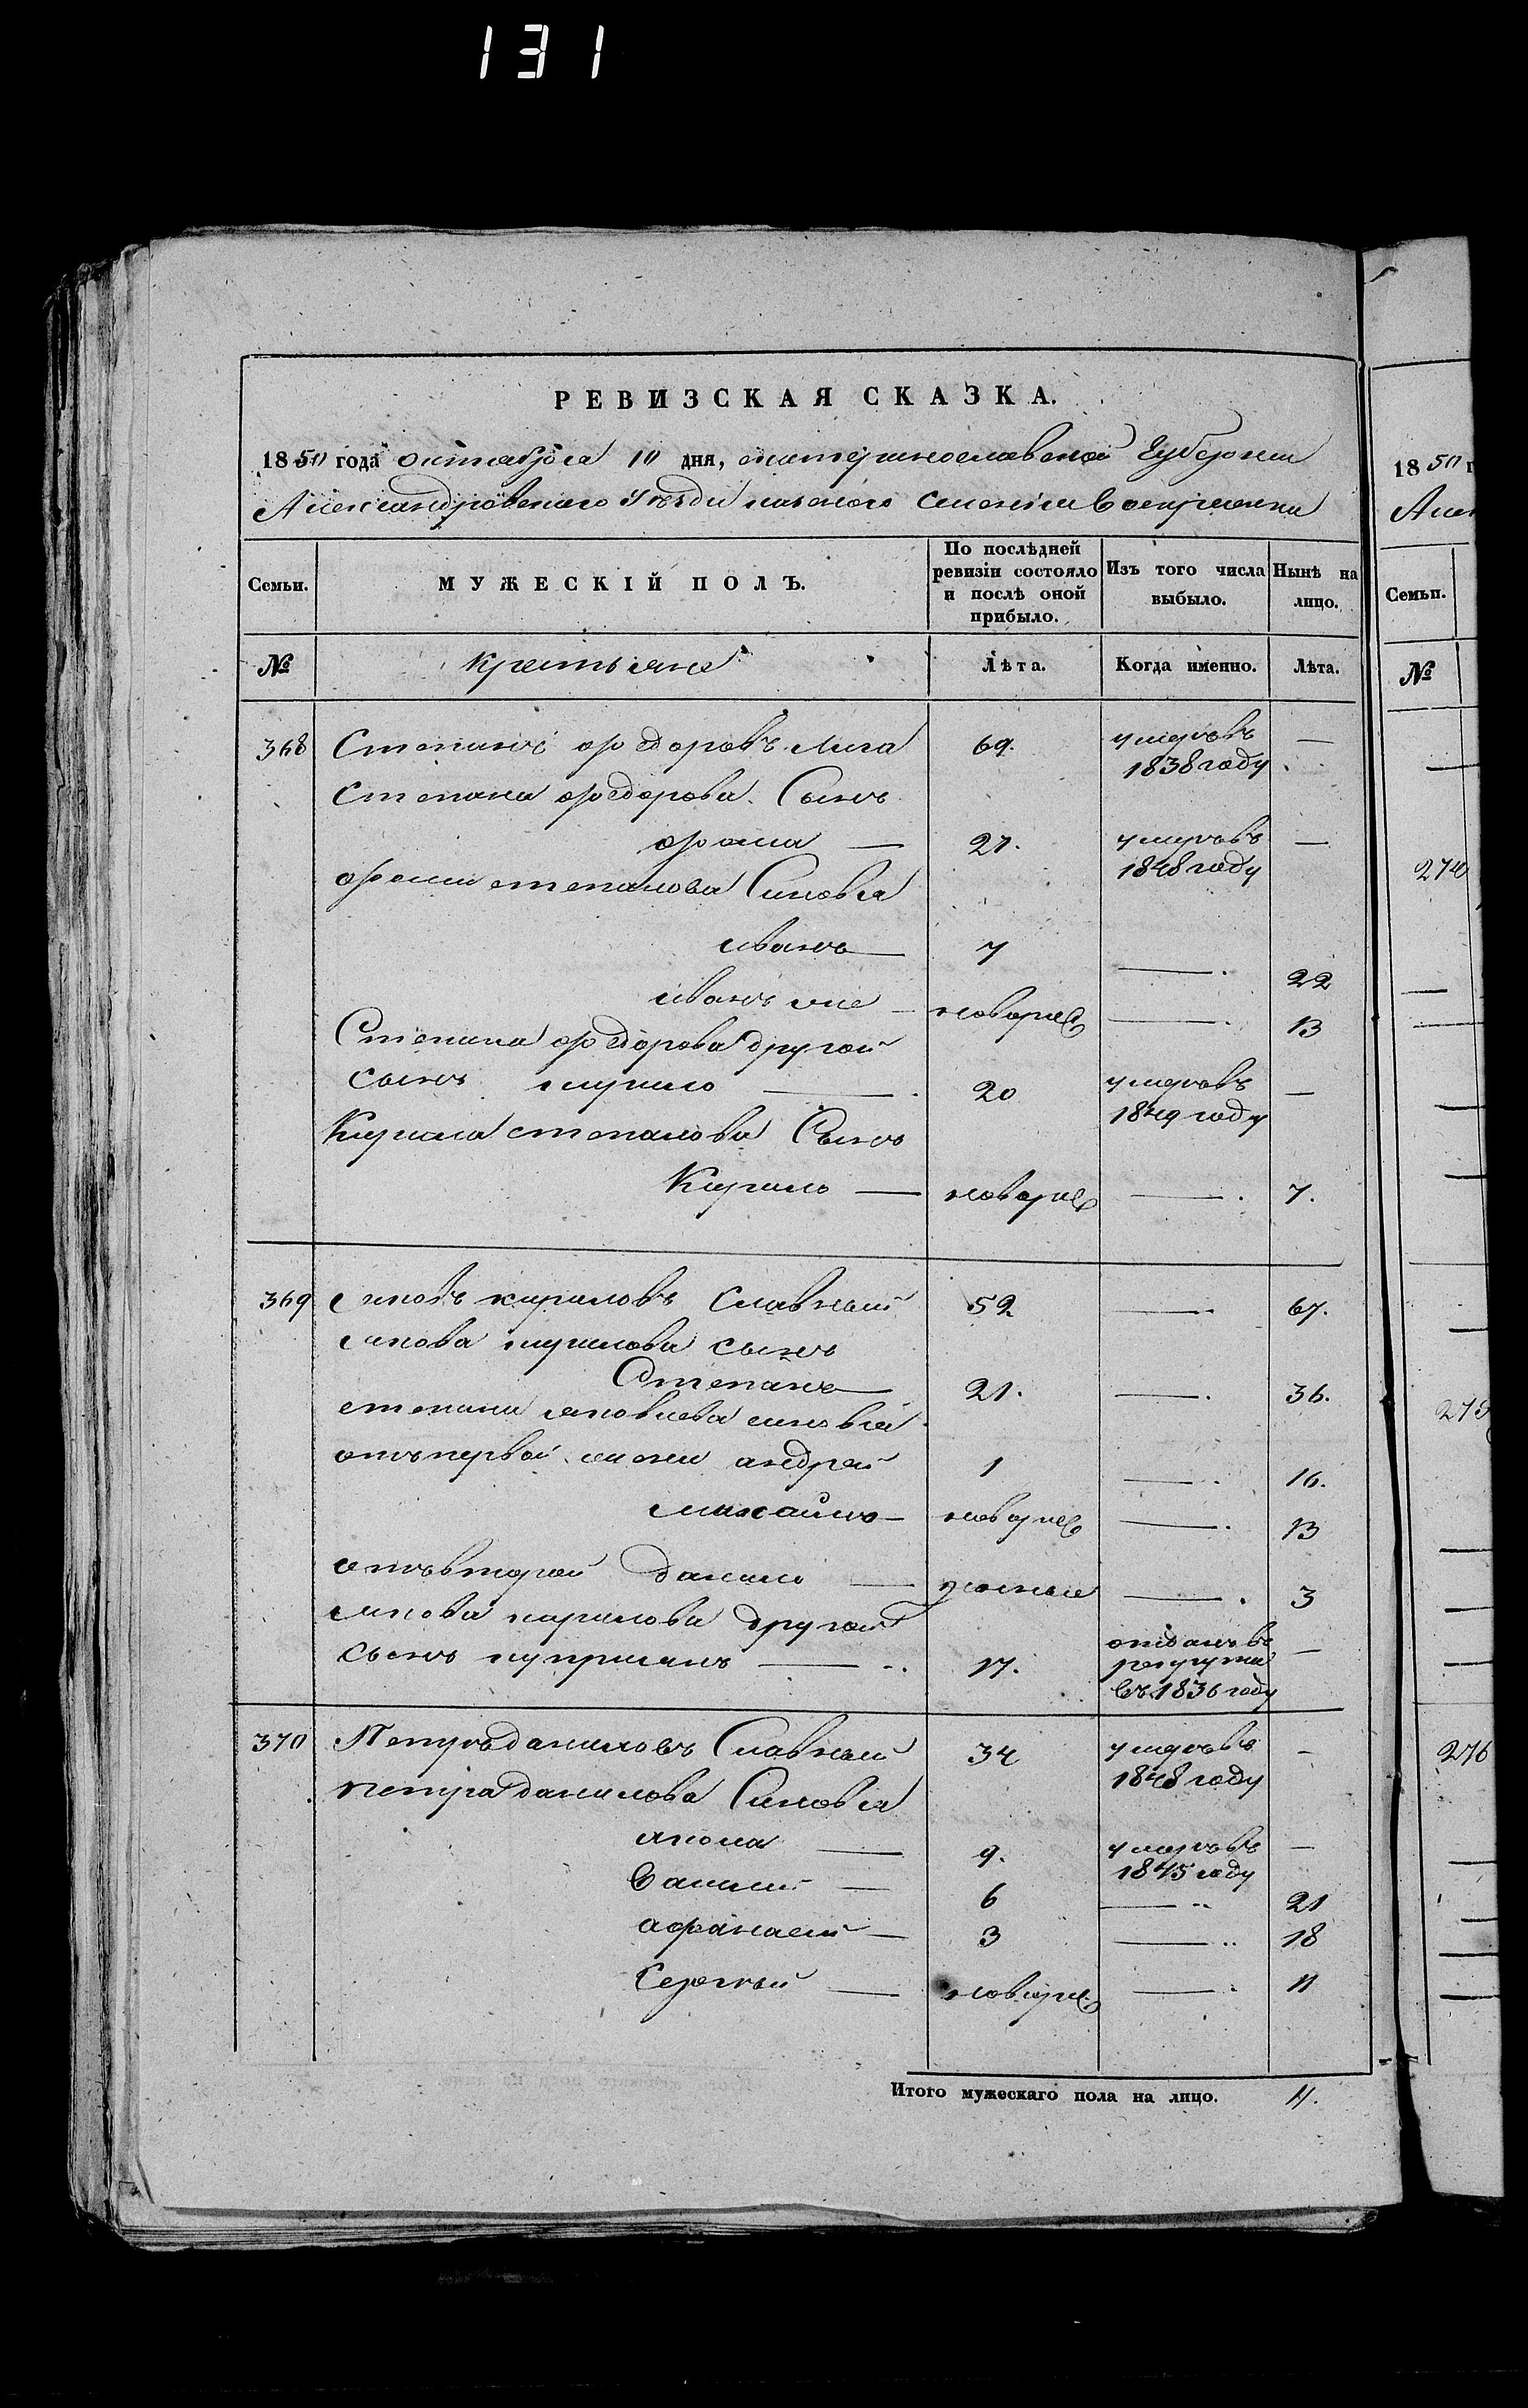 131
РЕВИЗСКАЯ СКАЗКА.
1850 года октября 10 дня, екатеринославской Губернии
Александровскаго Уезда казеного селения Воскресенки
Семьи. МУЖЕСКІЙ ПОЛЪ. По послѣдней ревизіи состояло и послѣ оной прибыло. Изъ того числа выбыло. Нынѣ на лицо.
№ крестьяне Лѣта. Когда именно. Лѣта.
368 Степанъ федоровъ 69. умеръ въ 1838 году —
Степана федорова Сынъ
фома — 27. умеръ въ 1848 году —
фомы степанова Синовья
иванъ — 7 — 22
иванъ же — новорож — 13
Степана федорова другой
сынъ кирило — 20 умеръ въ 1849 году —
Кирила степанова Сынъ
Кирило — новорож — 7.
369 яковъ кириловъ Славный 52 — 67.
якова кирилова сынъ
Степанъ — 21. — 36.
степана яковлева синовья
отъ первой жены андрей 1 — 16.
михайло — новорож — 13
отъ второй данило — — 3
якова кирилова другой
сынъ куприянъ — 17. отданъ въ рекруты въ 1836 году —
370 Петръ даниловъ Славный 34 умеръ въ 1848 году —
петра данилова Синовья
— 9. умеръ въ 1845 году —
— 6 — 21
афанасий — 3 — 18
Сергей — новорож — 11
Итого мужескаго пола на лицо. 11.
1850 г
Алек
Семьи.
№
274
275
276